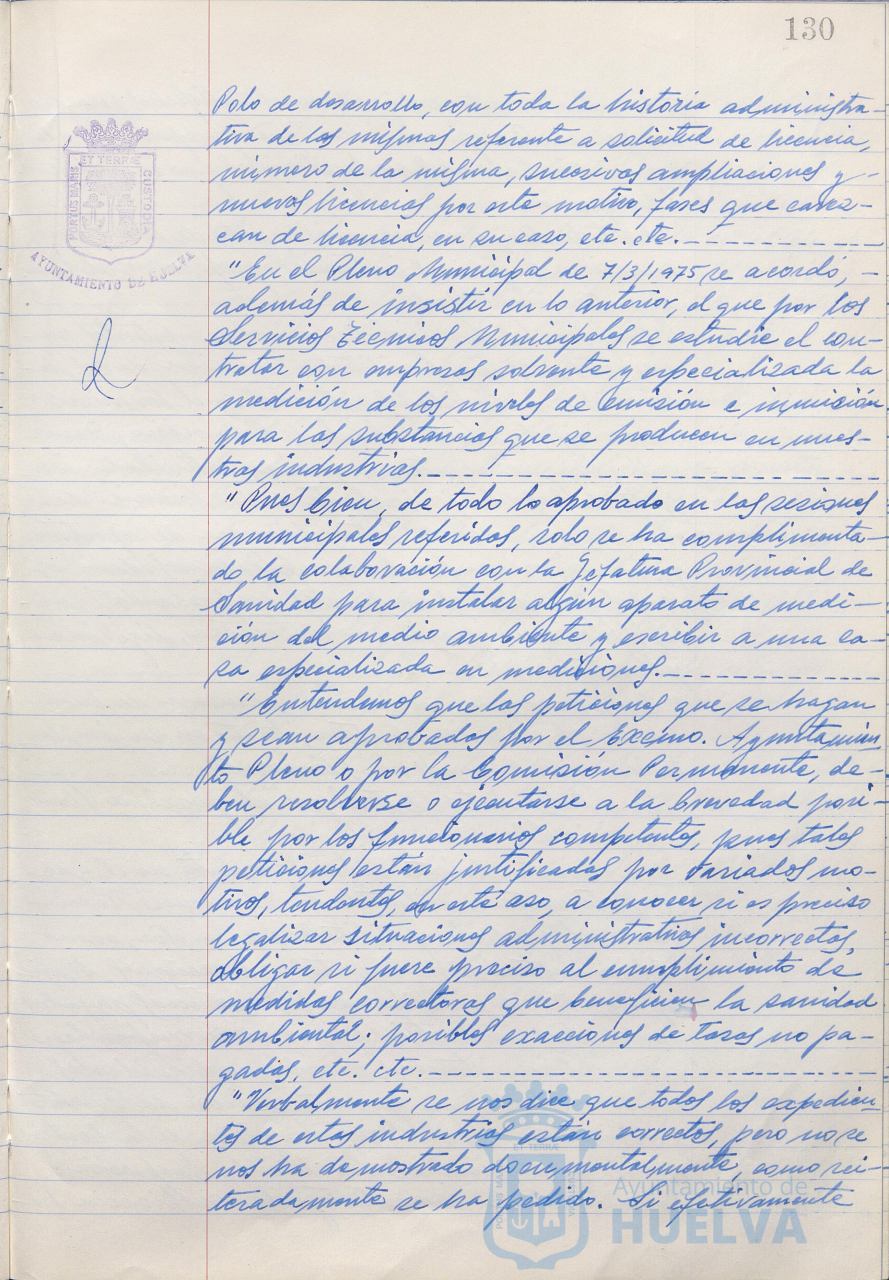 130
Polo de desarrollo, con toda la historia administra-
tiva de las mismas referente a solicitud de licencia,
número de la misma, sucesivas ampliaciones y-
nuevas licencias por este motivo, fases que carez-
can de licencia, en su caso, etc. etc.
"En el Pleno Municipal de 7/3/1975 se acordó, -
además de insistir en lo anterior, el que por los
Servicios Técnicos Municipales se estudie el con-
tratar con empresa solvente y especializada la
medición de los niveles de emisión e inmisión
para las substancias que se producen en nues-
tras industrias.
"Pues bien, de todo lo aprobado en las sesiones
municipales referidas, solo se ha complimenta-
do la colaboración con la Jefatura Provincial de
Sanidad para instalar algún aparato de medi-
ción del medio ambiente y escribir a una ca-
sa especializada en mediciones.
"Entendemos que las peticiones que se hagan
y sean aprobadas por el Excmo. Ayuntamien-
to Pleno o por la Comisión Permanente, de-
ben resolverse o ejecutarse a la brevedad posi-
ble por los funcionarios competentes, pues tales
peticiones están justificadas por variados mo-
tivos, tendentes, en este aso, a conocer si es preciso
legalizar situaciones administrativas incorrectas,
obligar si fuere preciso al cumplimiento de
medidas correctoras que beneficien la sanidad
ambiental; posibles exacciones de tasas no pa-
gadas, etc. etc.
"Verbalmente se nos dice que todos los expedien-
tes de estas industrias están correctos, pero no se
nos ha demostrado documentalmente, como rei-
teradamente se ha pedido. Si efectivamente
PORTUS MARIS
ET TERRAE
CUSTODIA
AYUNTAMIENTO DE HUELVA
Ayuntamiento de
HUELVA